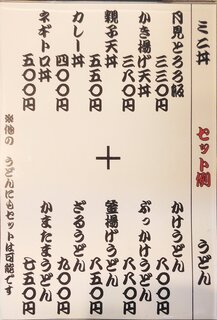 ミニ丼 セット例 うどん
月見とろろ飯 三三〇円
かき揚げ天丼 三八〇円
親子天丼 五五〇円
カレー丼 四〇〇円
ネギトロ丼 五〇〇円
＋
かけうどん 八〇〇円
ぶっかけうどん 八八〇円
釜揚げうどん 八五〇円
ざるうどん 九〇〇円
かまたまうどん 七五〇円
※他の うどんにもセットは可能です